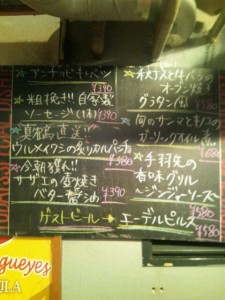 アンチョビキャベツ
¥390
★粗挽き!!自家製
ソーセージ(1本)¥390
★真鶴直送!
ウルメイワシの炙りカルパッチョ
¥580
★今朝獲れ!!
サザエの壺焼き
バター醤油 ¥390
オーブン焼き
グラタン
¥580
★旬のサンマとキノコ
ガーリックオイル煮
★手羽先の
香味グリル
〜ジンジャーソース〜
¥580
ゲストビール→エーデルピルス
¥580
gueyes